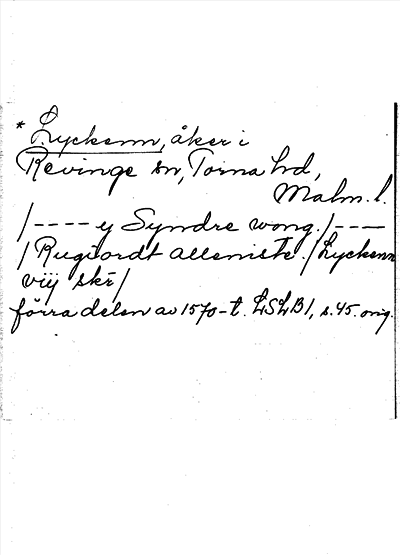 * Lyckenn, åker i
Revinge sn, Torna hd,
Malm. l.
/---- y Syndre wong./----
/ Rugiordt alleniste./Lyckenn
viij skr/
förra delen av 1570-t. LSLB1, s.45. orig.